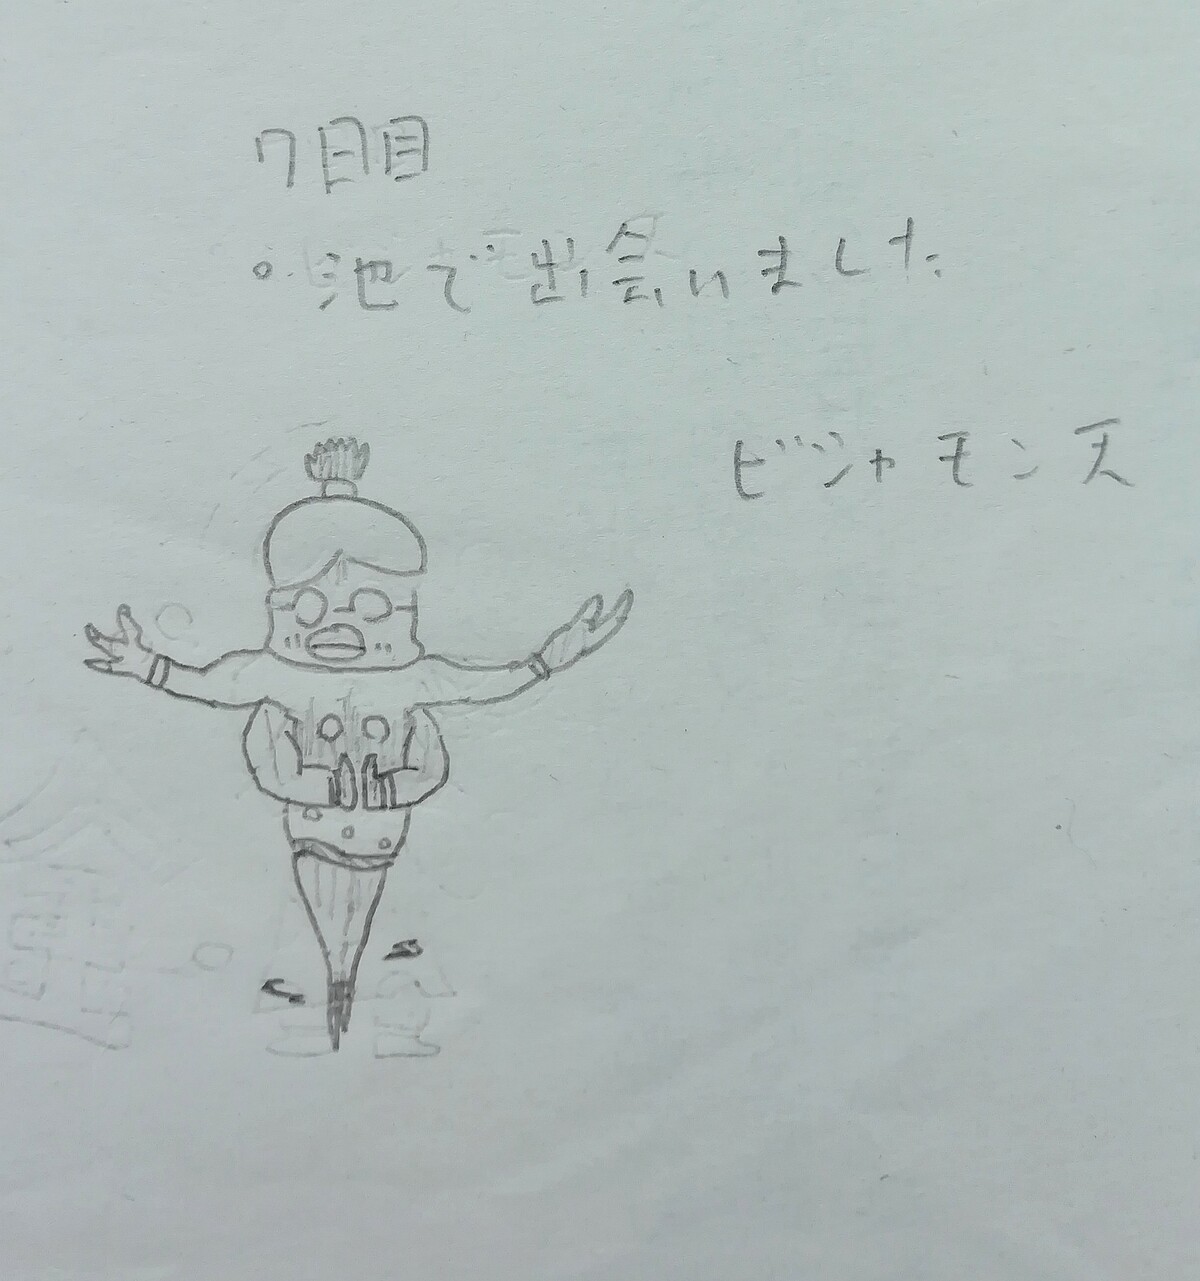 7日目
。池で出会いました
ビジャモン天